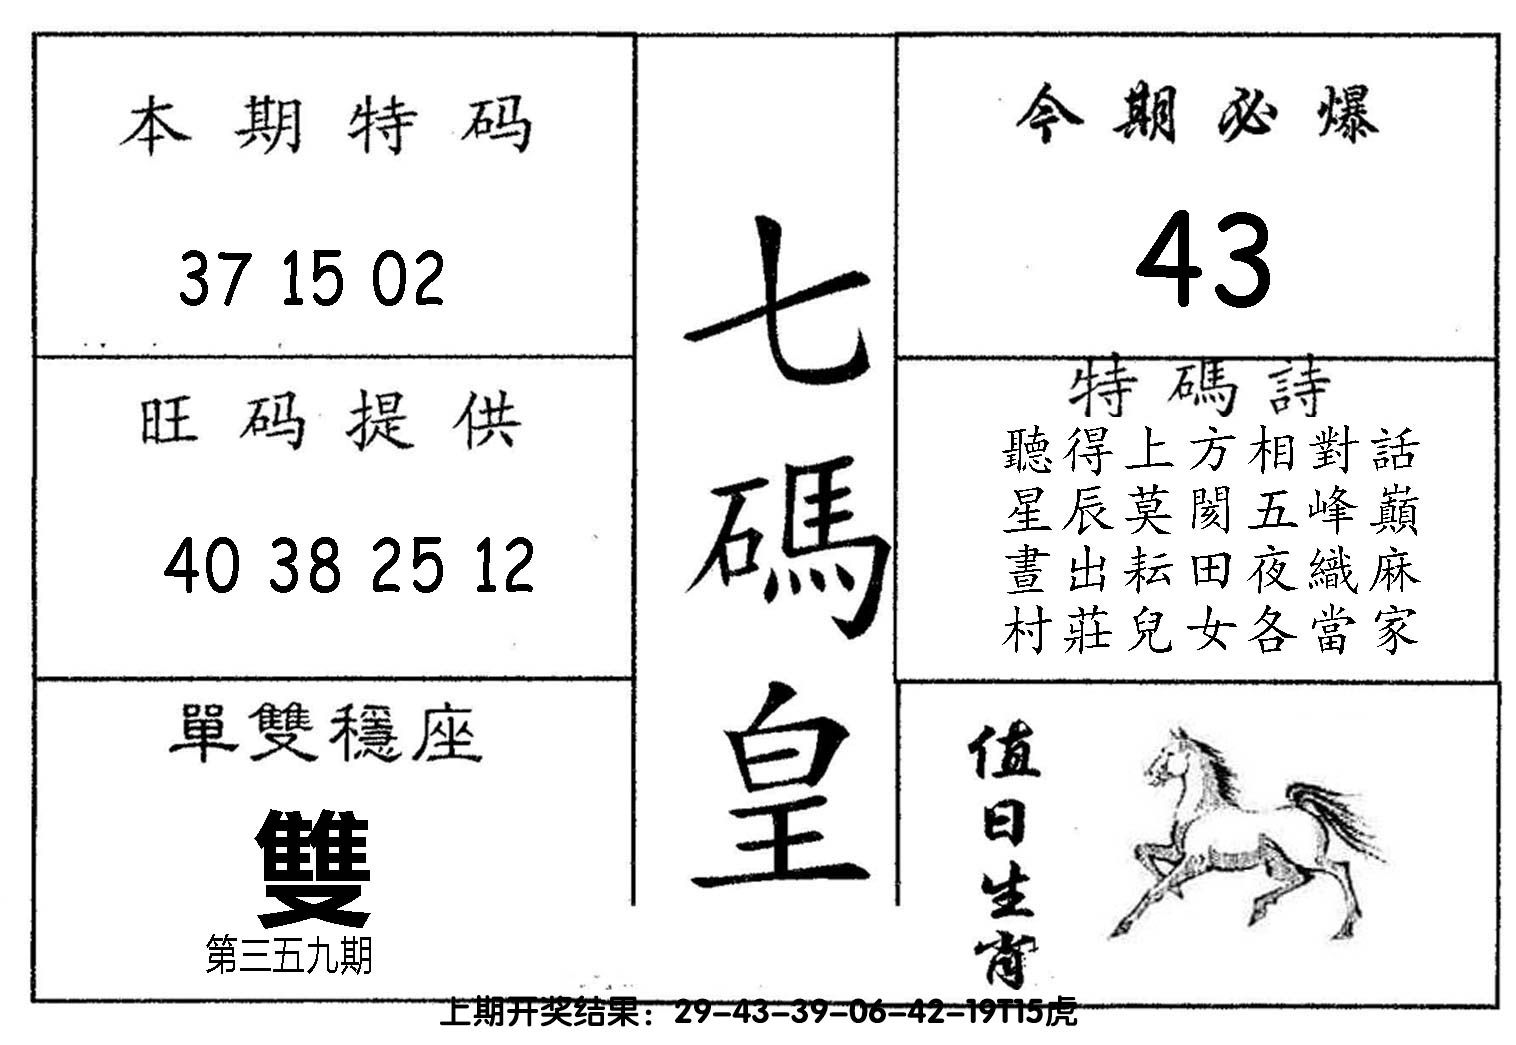 本期特码
37 15 02
旺码提供
40 38 25 12
單雙穩座
雙
第三五九期
七碼皇
今期必爆
43
特碼詩
聽得上方相對話
星辰莫閡五峰巔
晝出耘田夜織麻
村莊兒女各當家
值日生肖
上期开奖结果：29-43-39-06-42-19T15虎